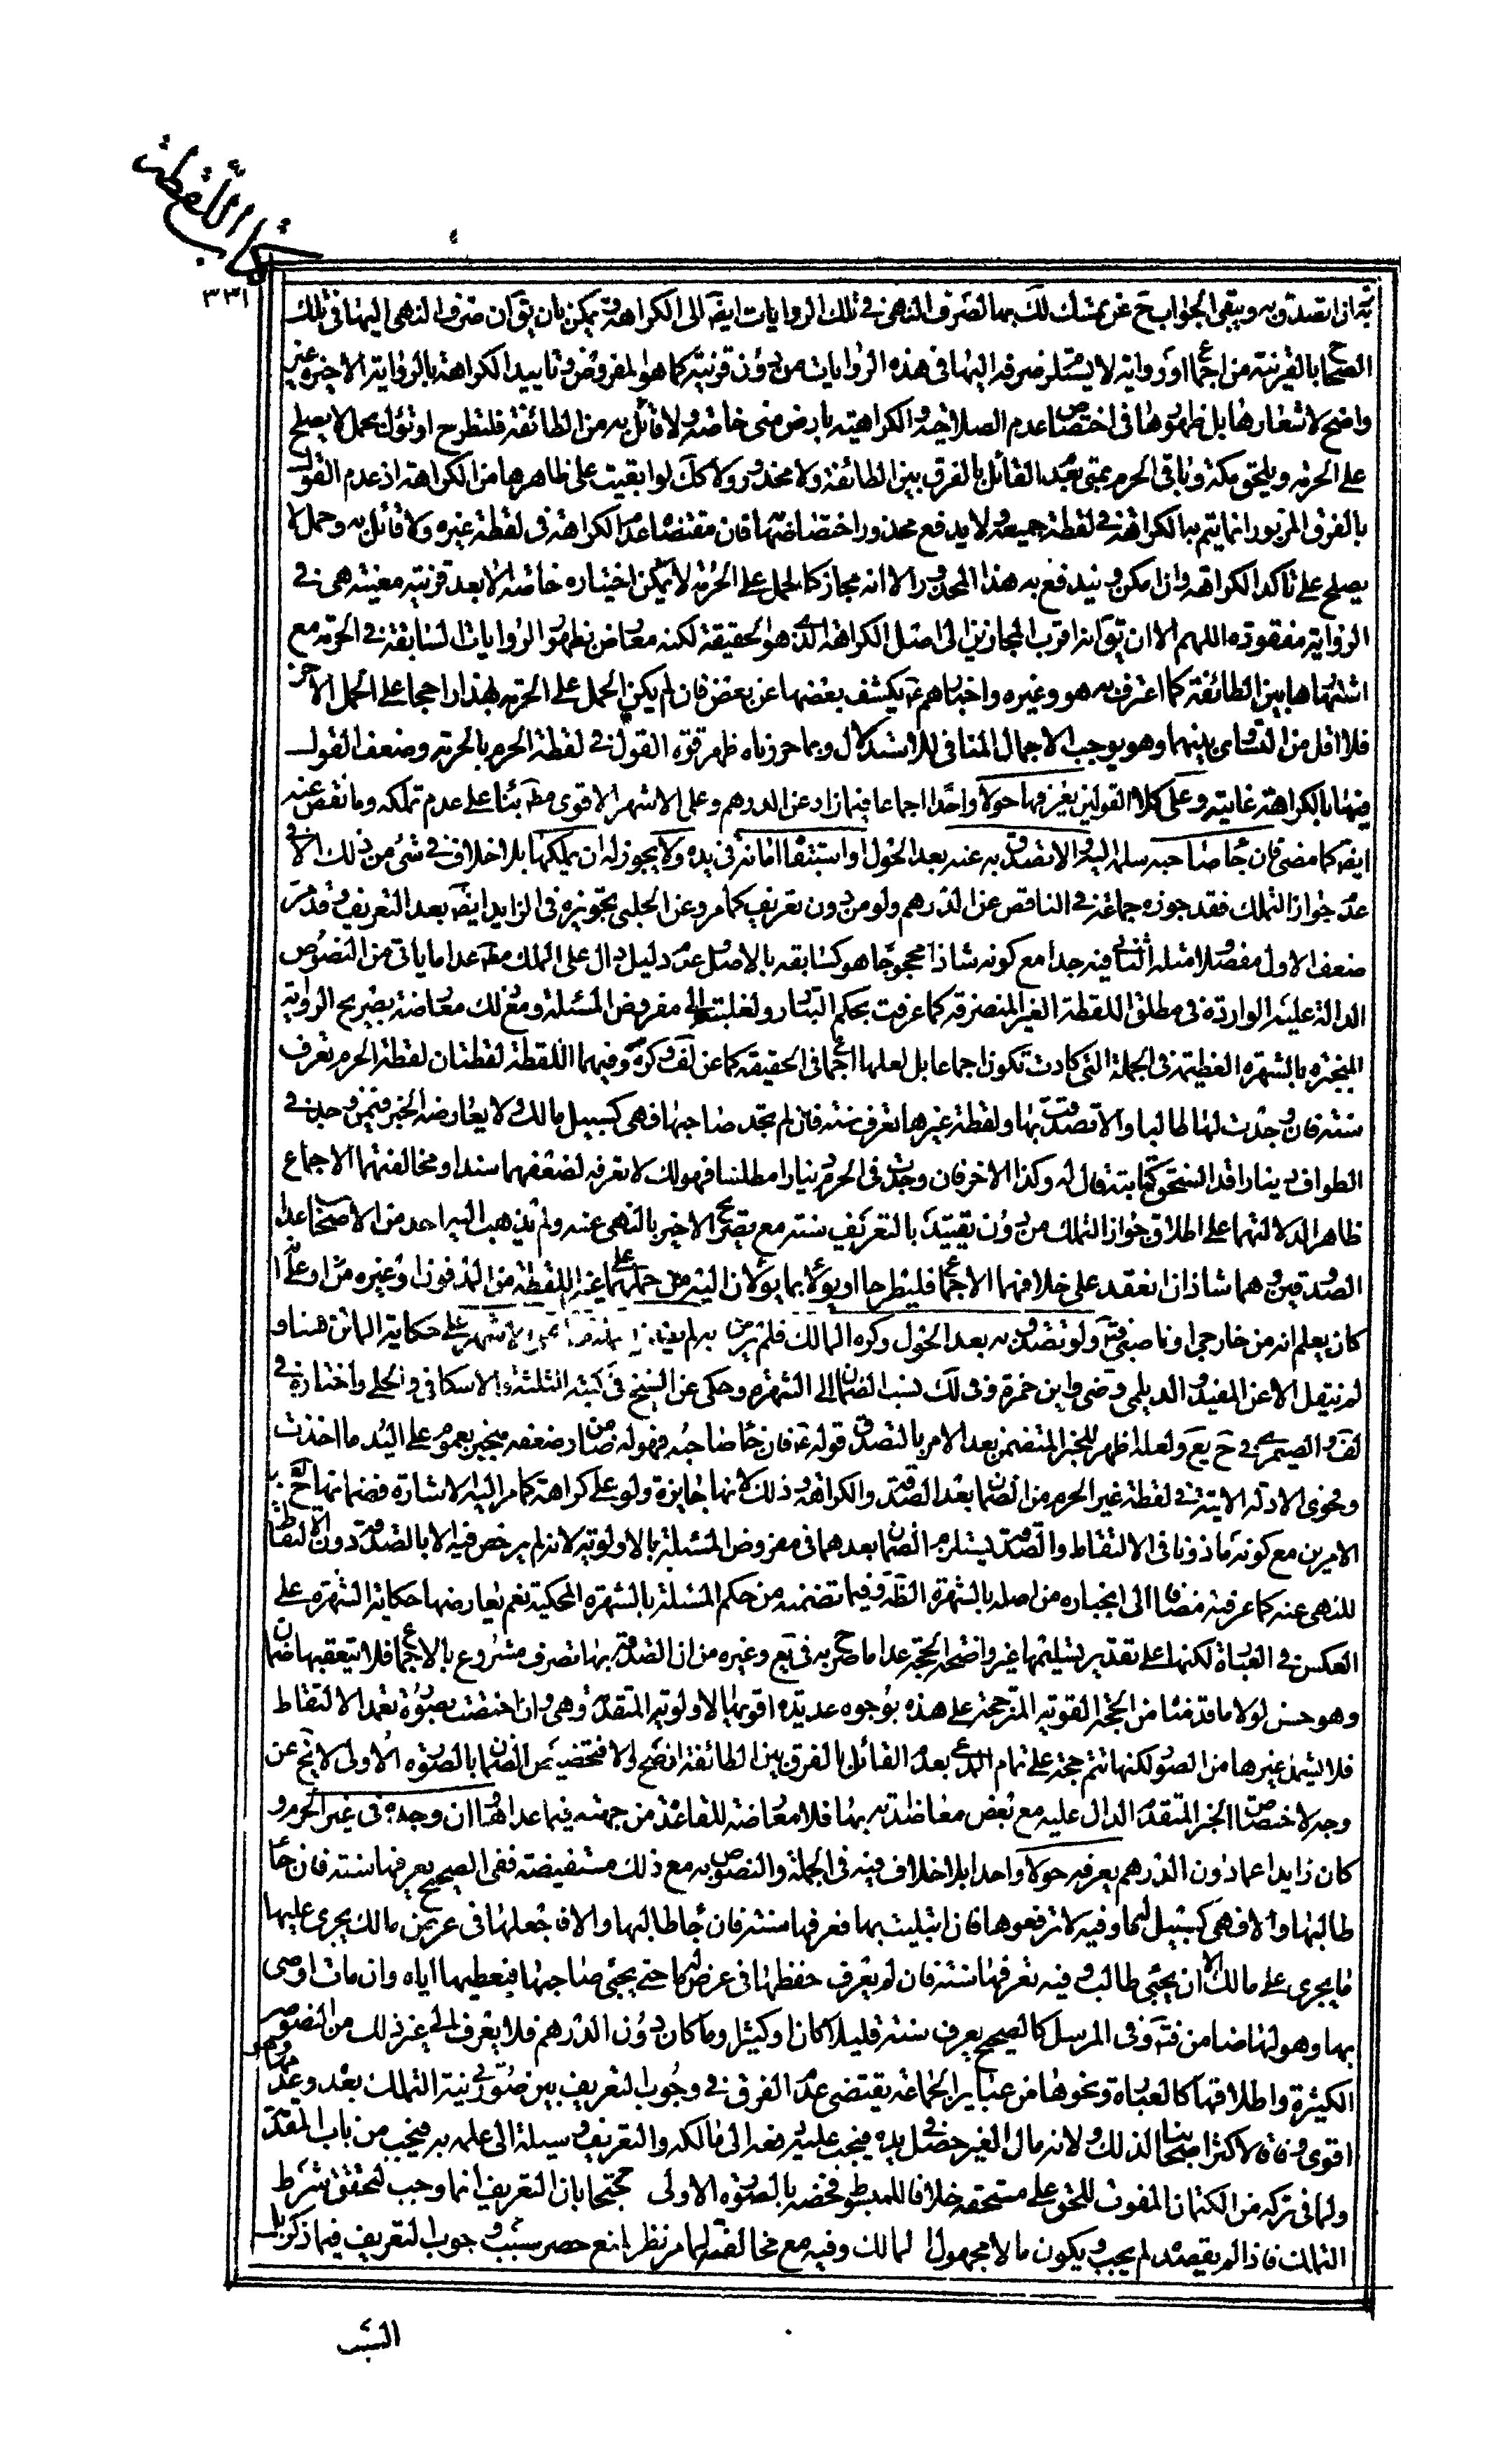 كتاب اللقطة
٣٣١
به ان تصدق به ويبقى الجواب ح عن تمسك لك بها لصرف النهى فى تلك الروايات ايضا الى الكراهة ويمكن بان يق ان صرف النهى اليها فى تلك
الصحاح بالقرينة من اجماع او رواية لا يستلزم صرفه اليها فى هذه الروايات من دون قرينة كما هو المفروض وتاييد الكراهة بالرواية الاخيرة غير
واضح لاشعارها بل ظهورها فى اختصاص عدم الصلاحية والكراهية بارض منى خاصة ولا قائل به من الطائفة فلتطرح او تؤل بحمل لا يصلح
على الحرمة ويلحق مكة وباقى الحرم بمنى بعدم القائل بالفرق بين الطائفة ولا محذور ولا كك لو ابقيت على ظاهرها من الكراهة اذ عدم القول
بالفرق المزبور انما يتم به الكراهة فى لقطة جميعه ولا يدفع محذور اختصاصها فان مقتضاه عدم الكراهة فى لقطة غيره ولا قائل به وحمل لا
يصلح على تاكد الكراهة وان امكن ويندفع به هذا المحذور الا انه مجاز كالحمل على الحرمة لا يمكن اختياره خاصة الا بعد قرينة معينة هى فى
الرواية مفقودة اللهم الا ان يق انه اقرب المجازين الى اصل الكراهة الذى هو الحقيقة لكنه معارض بظهور الروايات السابقة فى الحرمة مع
اشتهارها بين الطائفة كما اعترف به هو وغيره واخبارهم ع يكشف بعضها عن بعض فان لم يكن الحمل على الحرمة بهذا راجحا على الحمل الاخر
فلا اقل من التساوى بينهما وهو يوجب الاجمال المنافى للاستدلال وبما حررناه ظهر قوة القول فى لقطة الحرم بالحرمة وضعف القول
فيها بالكراهة غايته وعلى كلا القولين يعرفها حولا واحدا اجماعا فيما زاد عن الدرهم وعلى الاشهر الاقوى مط بناء على عدم تملكه وما نقص عنه
ايضا كما مضى فان جاء صاحبه سلمه اليه والا تصدق به عنه بعد الحول او استبقاه امانة فى يده ولا يجوز له ان يملكها بلا خلاف فى شئ من ذلك الا فى
عدم جواز التملك فقد جوزه جماعة فى الناقص عن الدرهم ولو من دون تعريف كما مر وعن الحلبى تجويزه فى الزايد ايضا بعد التعريف وقد مر
ضعف الاول مفصلا مثله الثانى فيه جدا مع كونه شاذا محجوجا هو كسابقه بالاصل وعدم دليل دال على الملك مط عدا ما ياتى من النصوص
الدالة عليه الواردة فى مطلق اللقطة الغير المنصرفة كما عرفت بحكم التبادر ولغلبة الى مفروض المسئلة ومع ذلك معارضة بصريح الرواية
المنجبرة بالشهرة العظيمة فى الجملة التى كادت تكون اجماعا بل لعلها اجماع فى الحقيقة كما عن لف وكره وفيهما اللقطة لقطتان لقطة الحرم تعرف
سنة فان وجدت لها طالبا والا تصدقت بها ولقطة غيرها تعرف سنة فان لم تجد صاحبها فهى كسبيل مالك ولا يعارضه الخبر فيمن وجد فى
الطواف دينارا قد انسحق كتابته قال له وكذا الاخر فان وجدت فى الحرم دينارا مطلسا فهو لك لا تعرفه لضعفهما سندا ومخالفتهما الاجماع
ظاهرا لدلالتهما على اطلاق جواز التملك من دون تقييد بالتعريف سنة مع تصريح الاخير بالنهى عنه ولم يذهب اليه احد من الاصحاب عدا
الصدوقين وهما شاذان انعقد على خلافهما الاجماع فليطرحا او يؤلا بما يؤلان اليه من حملهما على غير اللقطة من المدفون او غيره من او على
كان يعلم انه من خارجى او ناصبى فت ولو تصدق به بعد الحول وكره المالك فلم يرض به لم يضمن الاشهر على حكاية الماتن هنا و
لم ينقل الا عن المفيد والديلمى وضى وابن حمزة وفى لك نسب الضمان الى الشهرة وحكى عن الشيخ فى كتبه الثلثة والاسكافى والحلى واختاره فى
لف والصيمرى فى ح يع ولعله اظهر للخبر المتضمن بعد الامر بالتصدق قوله ع فان جاء صاحبه فهو له ضامن وضعفه منجبر بعموم على اليد ما اخذت
وفحوى الادلة الاتية فى لقطة غير الحرم من الضمان بعد الصدقة والكراهة وذلك لانها جايزة ولو على كراهة كما مر اليه الاشارة فضمانها ح
الامرين مع كونه ماذونا فى الالتقاط والتصدق يستلزم الضمان بعدهما فى مفروض المسئلة بالاولوية لانه لم يرخص فيه الا بالتصدق دون الالتقاط
للنهى عنه كما عرفته مضافا الى انجباره من اصله بالشهرة الظاهرة وفيما تضمنه من حكم المسئلة بالشهرة المحكية نعم يعارضها حكاية الشهرة على
العكس فى العبارة لكنها على تقدير تسليمها غير واضحة الحجة عدا ما صرح به فى يع وغيره من ان الصدقة بها تصرف مشروع بالاجماع فلا يتعقبها ضمان
وهو حسن لولا ما قدمنا من الحجة القوية المترجحة على هذه بوجوه عديدة اقويها الاولوية المتقدمة وهى وان اختصت بصورة تعمد الالتقاط
فلا يشمل غيرها من الصور لكنها تتم حجة على تمام المدعى بعدم القائل بالفرق بين الطائفة افصح والا فتخصيص الضمان بالصورة الاولى لا يخ عن
وجه لاختصاص الخبر المتقدم الدال عليه مع بعض معاضداته بها فلا معارضة للقاعدة من جهته فيما عداها وان وجده فى غير الحرم و
كان زايدا عما دون الدرهم يعرفه حولا واحدا بلا خلاف فيه فى الجملة والنصوص به مع ذلك مستفيضة ففى الصحيح يعرفها سنة فان جاء
طالبها والا فهى كسبيل ماله وفيه لا ترفعوها فان ابتليت بها فعرفها سنة فان جاء طالبها والا فاجعلها فى عرض مالك يجرى عليها
ما يجرى على مالك الا ان يجئى طالب وفيه تعرفها سنة فان لم يعرف حفظها فى عرض ماله حتى يجئى صاحبها فيعطيها اياه وان مات اوصى
بها وهو لها ضامن فت وفى المرسل كالصحيح يعرف سنة قليلا كان او كثيرا وما كان دون الدرهم فلا يعرف الى غير ذلك من النصوص
الكثيرة واطلاقها كالعبارة ونحوها من عباير الجماعة يقتضى عدم الفرق فى وجوب التعريف بين صورتى نية التملك بعده وعدمها وهو
اقوى وفاقا لاكثر اصحابنا لذلك ولانه مال الغير حصل فى يده فيجب عليه دفعه الى مالكه والتعريف وسيلة الى علمه به فيجب من باب المقدمة
ولما فى تركه من الكتمان المفوت للحق على مستحقه خلافا للمبسوط فخصه بالصورة الاولى محتجا بان التعريف انما وجب لتحقق شرط
التملك فاذا لم يقصده لم يجب ويكون مالا مجهول المالك وفيه مع مخالفته لما مر نظر لمنع حصر سبب وجوب التعريف فيما ذكره بل
السبب